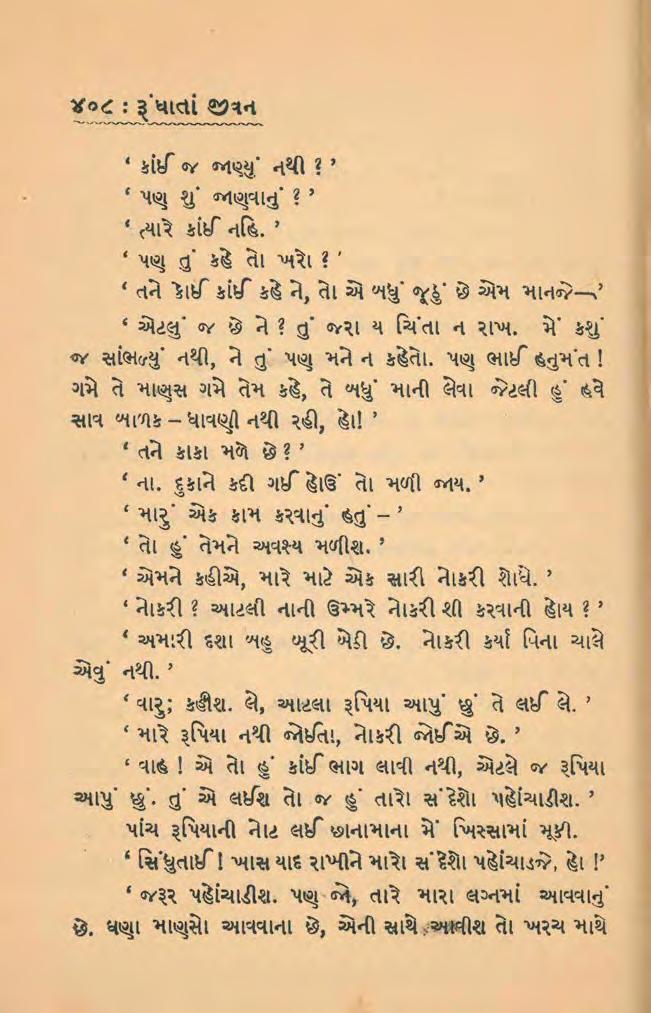 ૪૦૮ : રૂંધાતાં જીવન
‘ કાંઈ જ જાણ્યું નથી ? ’
‘ પણ શું જાણવાનું ? ’
‘ ત્યારે કાંઈ નહિ. ’
‘ પણ તું કહે તો ખરો ? ’
‘ તને કોઈ કાંઈ કહે ને, તો એ બધું જૂઠું છે એમ માનજે—’
‘ એટલું જ છે ને ? તું જરા ય ચિંતા ન રાખ. મેં કશું
જ સાંભળ્યું નથી, ને તું પણ મને ન કહેતો. પણ ભાઈ હનુમંત !
ગમે તે માણસ ગમે તેમ કહે, તે બધું માની લેવા જેટલી હું હવે
સાવ બાળક – ધાવણી નથી રહી, હો! ’
‘ તને કાકા મળે છે ? ’
‘ ના. દુકાને કદી ગઈ હોઉં તો મળી જાય. ’
‘ મારું એક કામ કરવાનું હતું – ’
‘ તો હું તેમને અવશ્ય મળીશ. ’
‘ એમને કહીએ, મારે માટે એક સારી નોકરી શોધે. ’
‘ નોકરી ? આટલી નાની ઉમ્મરે નોકરી શી કરવાની હોય ? ’
‘ અમારી દશા બહુ બૂરી બેઠી છે. નોકરી કર્યા વિના ચાલે
એવું નથી. ’
‘ વારુ; કહીશ. લે, આટલા રૂપિયા આપું છું તે લઈ લે. ’
‘ મારે રૂપિયા નથી જોઈતા, નોકરી જોઈએ છે. ’
‘ વાહ ! એ તો હું કાંઈ ભાગ લાવી નથી, એટલે જ રૂપિયા
આપું છું. તું એ લઈશ તો જ હું તારો સંદેશો પહોંચાડીશ. ’
પાંચ રૂપિયાની નોટ લઈ છાનામાના મેં ખિસ્સામાં મૂકી.
‘ સિંધુતાઈ ! ખાસ યાદ રાખીને મારો સંદેશો પહોંચાડજે, હો !’
‘ જરૂર પહોંચાડીશ. પણ જો, તારે મારા લગ્નમાં આવવાનું
છે. ઘણા માણસો આવવાના છે, એની સાથે આવીશ તો ખરચ માથે